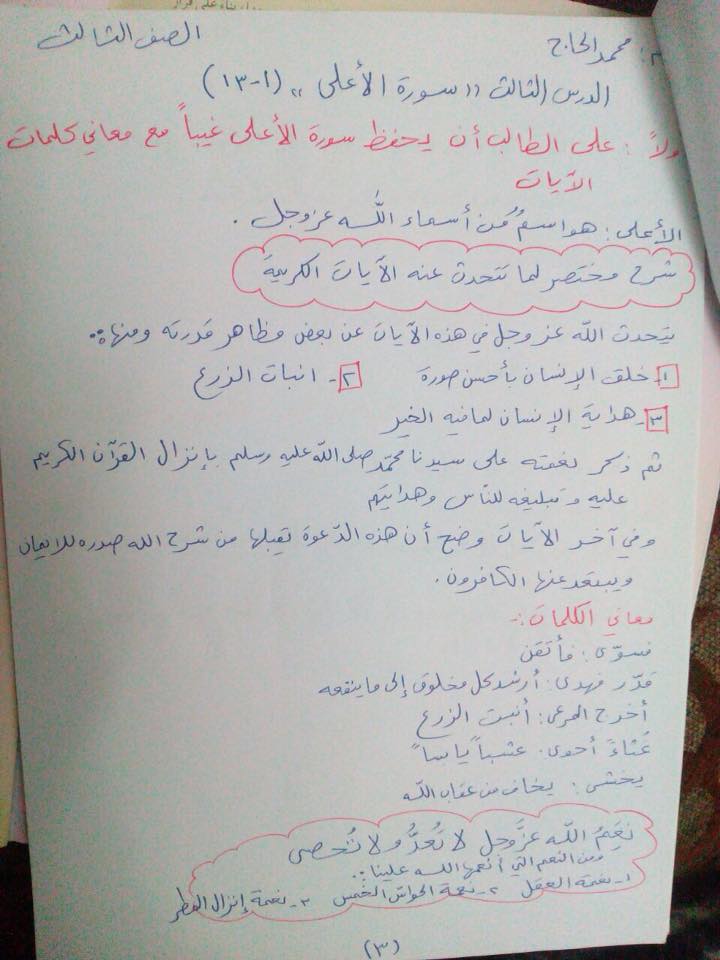 م: محمد الحاج الصف الثالث
الدرس الثالث "سورة الأعلى" (١-١٣)
ولاً: على الطالب أن يحفظ سورة الأعلى غيباً مع معاني كلمات
الآيات
الأعلى: هو اسمٌ من أسماء الله عز وجل.
شرح مختصر لما تتحدث عنه الآيات الكريمة
يتحدث الله عز وجل في هذه الآيات عن بعض مظاهر قدرته ومنها:
١- خلق الإنسان بأحسن صورة ٢- انبات الزرع
٣- هداية الإنسان لما فيه الخير
ثم ذكر نعمته على سيدنا محمّد صلى الله عليه وسلم بإنزال القرآن الكريم
عليه وتبليغه للنّاس وهدايتهم
وفي آخر الآيات وضح أن هذه الدّعوة يقبلها من شرح الله صدره للايمان
ويبتعد عنها الكافرون.
معاني الكلمات:-
فسوّى: فأتقن
قدّر فهدى: أرشد كل مخلوق إلى ما ينفعه
أخرج المرعى: أنبت الزرع
غُثاءً أحوى: عشباً يابساً
يخشى: يخاف من عقاب الله
نِعَمُ الله عزَّ وجل لا تُعدُّ ولا تُحصى
ومن النعم التي أنعمها الله علينا:
١- نعمة العقل ٢- نعمة الحواسّ الخمس ٣- نعمة إنزال المطر
(٣)